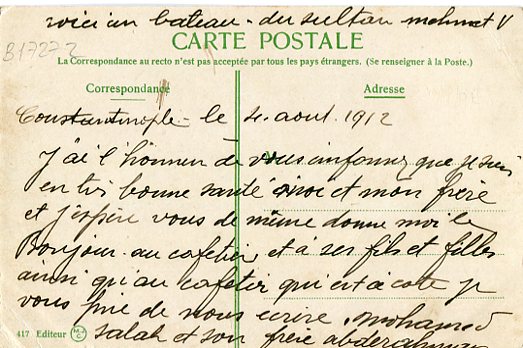 voici un bateau - du sultan mehmet V
B17272
CARTE POSTALE
La Correspondance au recto n'est pas acceptée par tous les pays étrangers. (Se renseigner à la Poste.)
Correspondance
Adresse
Constantinople - le 4 aout 1912
J'ai l'honneur de vous informez que je suis
en trè bonne santé et mon frère
et j'espère vous de même donne moi le
Bonjour au cafetier et à ses fils et filles
ainsi qu'au cafetier qui est à coté je
vous prie de nous ecrire. Mohamed
salah et son frère abderahman
417 Editeur